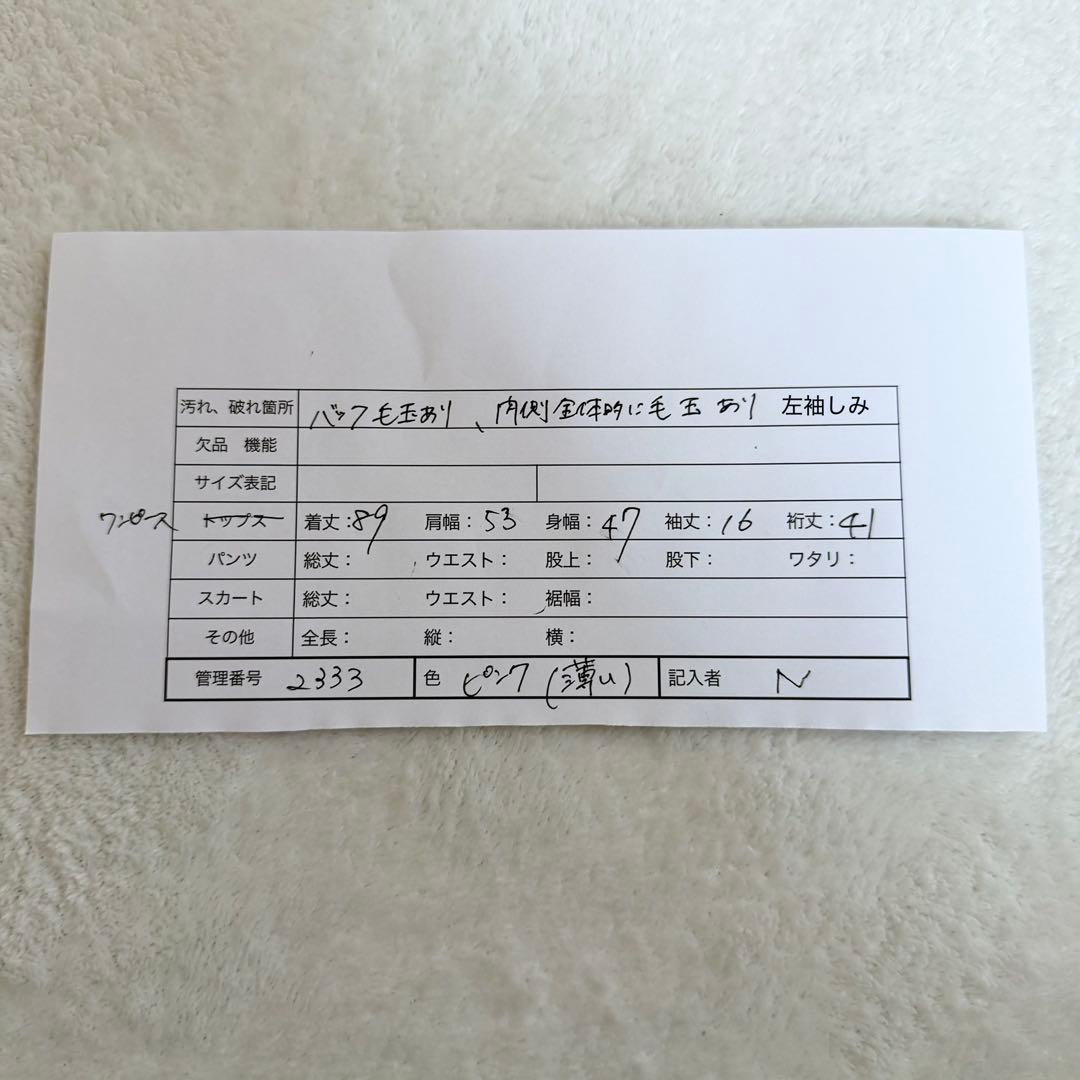 汚れ、破れ箇所 バック毛玉あり、内側全体的に毛玉あり 左袖しみ
欠品 機能
サイズ表記
ワンピース トップス 着丈:89 肩幅:53 身幅:47 袖丈:16 裄丈:41
パンツ 総丈: ウエスト: 股上: 股下: ワタリ:
スカート 総丈: ウエスト: 裾幅:
その他 全長: 縦: 横:
管理番号 2333 色 ピンク(薄い) 記入者 N